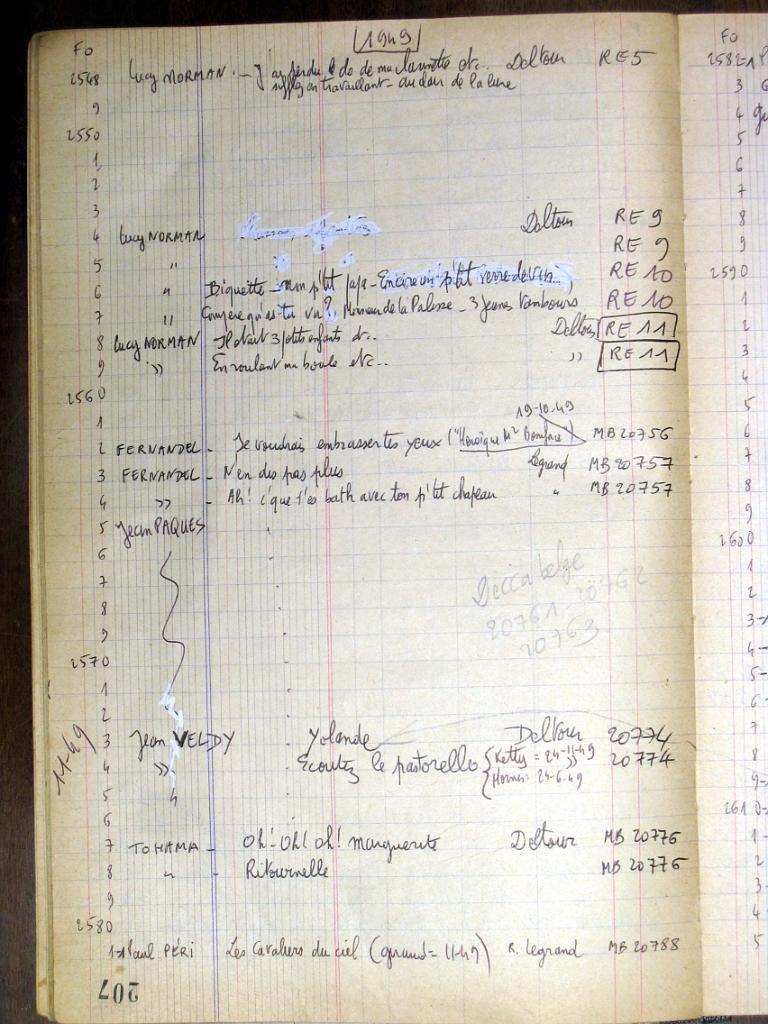 1949
Fo
2548 Lucy NORMAN - J'ai perdu le do de ma clarinette etc.. Deltour RE 5
sifflez en travaillant - au clair de la lune
9
2550
1
2
3
4 Lucy NORMAN Deltour RE 9
5 " RE 9
6 " Biquette - mon p'tit papa - Encore un p'tit verre de vin... RE 10
7 " Compère qu'as-tu vu?, Monsieur de la Palisse - 3 jeunes tambours RE 10
8 Lucy NORMAN - Il était 3 petits enfants etc.. Deltour RE 11
9 " En roulant ma boule etc.. " RE 11
2560
1
19-10-49
2 FERNANDEL - Je voudrais embrasser tes yeux ("Heroïque Mr Boniface") MB 20756
3 FERNANDEL - N'en dis pas plus Legrand MB 20757
4 " - Ah! c'que t'es bath avec ton p'tit chapeau " MB 20757
5 Jean PAQUES
6
7
Decca belge
8
20761 20762
9
20763
2570
1
2
11-49
3 Jean VELDY Yolande Deltour 20774
4 " Ecoutez le pastorello { Ketty = 24-11-49 " 20774
{ Horner = 24-6-49
5 "
6
7 TOHAMA - Oh! - Oh! oh! marguerite Deltour MB 20776
8 " - Ritournelle MB 20776
9
2580
1 Paul PÉRI Les Cavaliers du ciel ( 11-49) R. Legrand MB 20788
207
Fo
2582
3
4
5
6
7
8
9
2590
1
2
3
4
5
6
7
8
9
2600
1
2
3
4
5
6
7
8
9
2610
1
2
3
4
5